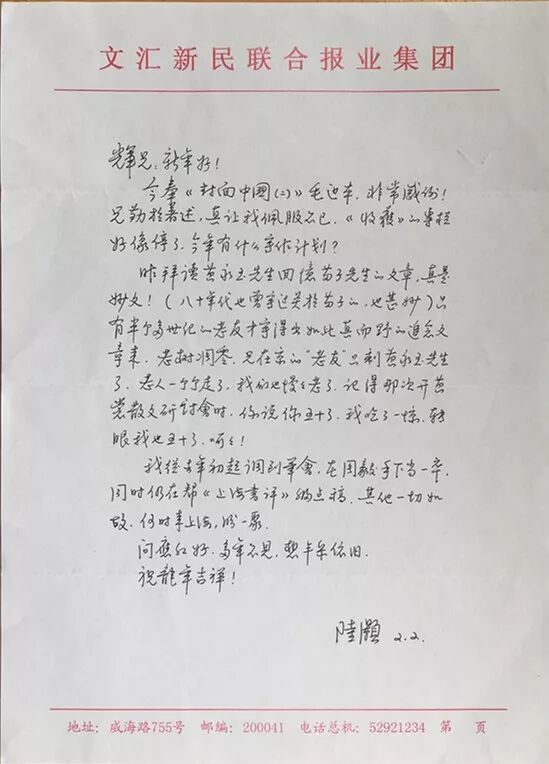 文汇新民联合报业集团
辉兄：新年好！
今奉《封面中國(二)》毛边本，非常感谢！
兄勤於著述，真让我佩服不已，《收獲》的專栏
好像停了，今年有什么写作计划？
昨拜读黄永玉先生回憶苗子先生的文章，真是
妙文！（八十年代也曾写过关於苗子的，也甚妙）只
有半个多世纪的老友才写得出如此真而野的追念文
章来。老树凋零，兄在京的“老友”只剩黄永玉先生
了，老人一个个走了，我们也慢慢老了。记得那次开黄
裳散文研討會时，你说你五十了，我吃了一惊，转
眼我也五十了，呵呵！
我從去年初起调到筆會，在周毅手下当一卒，
同时仍在帮《上海書评》编点稿，其他一切如
故，何时来上海，盼一聚。
问應红好，多年不见，想丰采依旧。
祝龍年吉祥！
陸灝 2.2.
地址：威海路755号 邮编：200041 电话总机：52921234 第 页